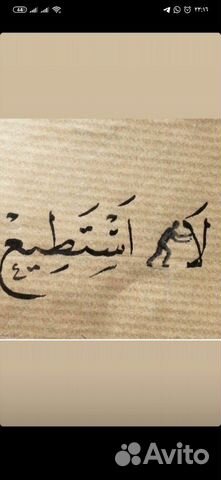 ٢٣:١٦
لَا اَسْتَطِيعْ
Avito